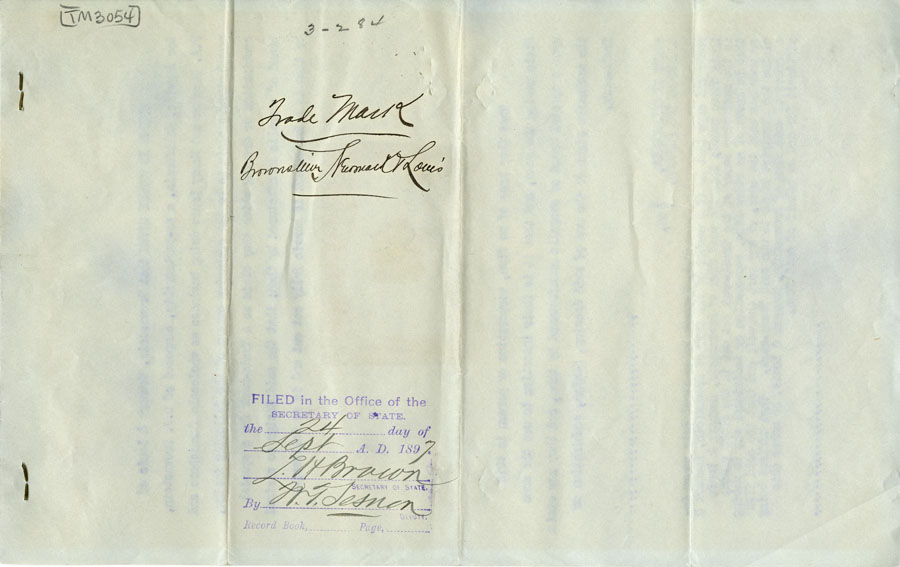 TM3054
3-284
Trade Mark
Brownstein, Newmark & Louis
FILED in the Office of the
SECRETARY OF STATE.
the 24 day of
Sept A. D. 1897.
L. H Brown
SECRETARY OF STATE.
By W. T. Sesnon
DEPUTY.
Record Book, Page,